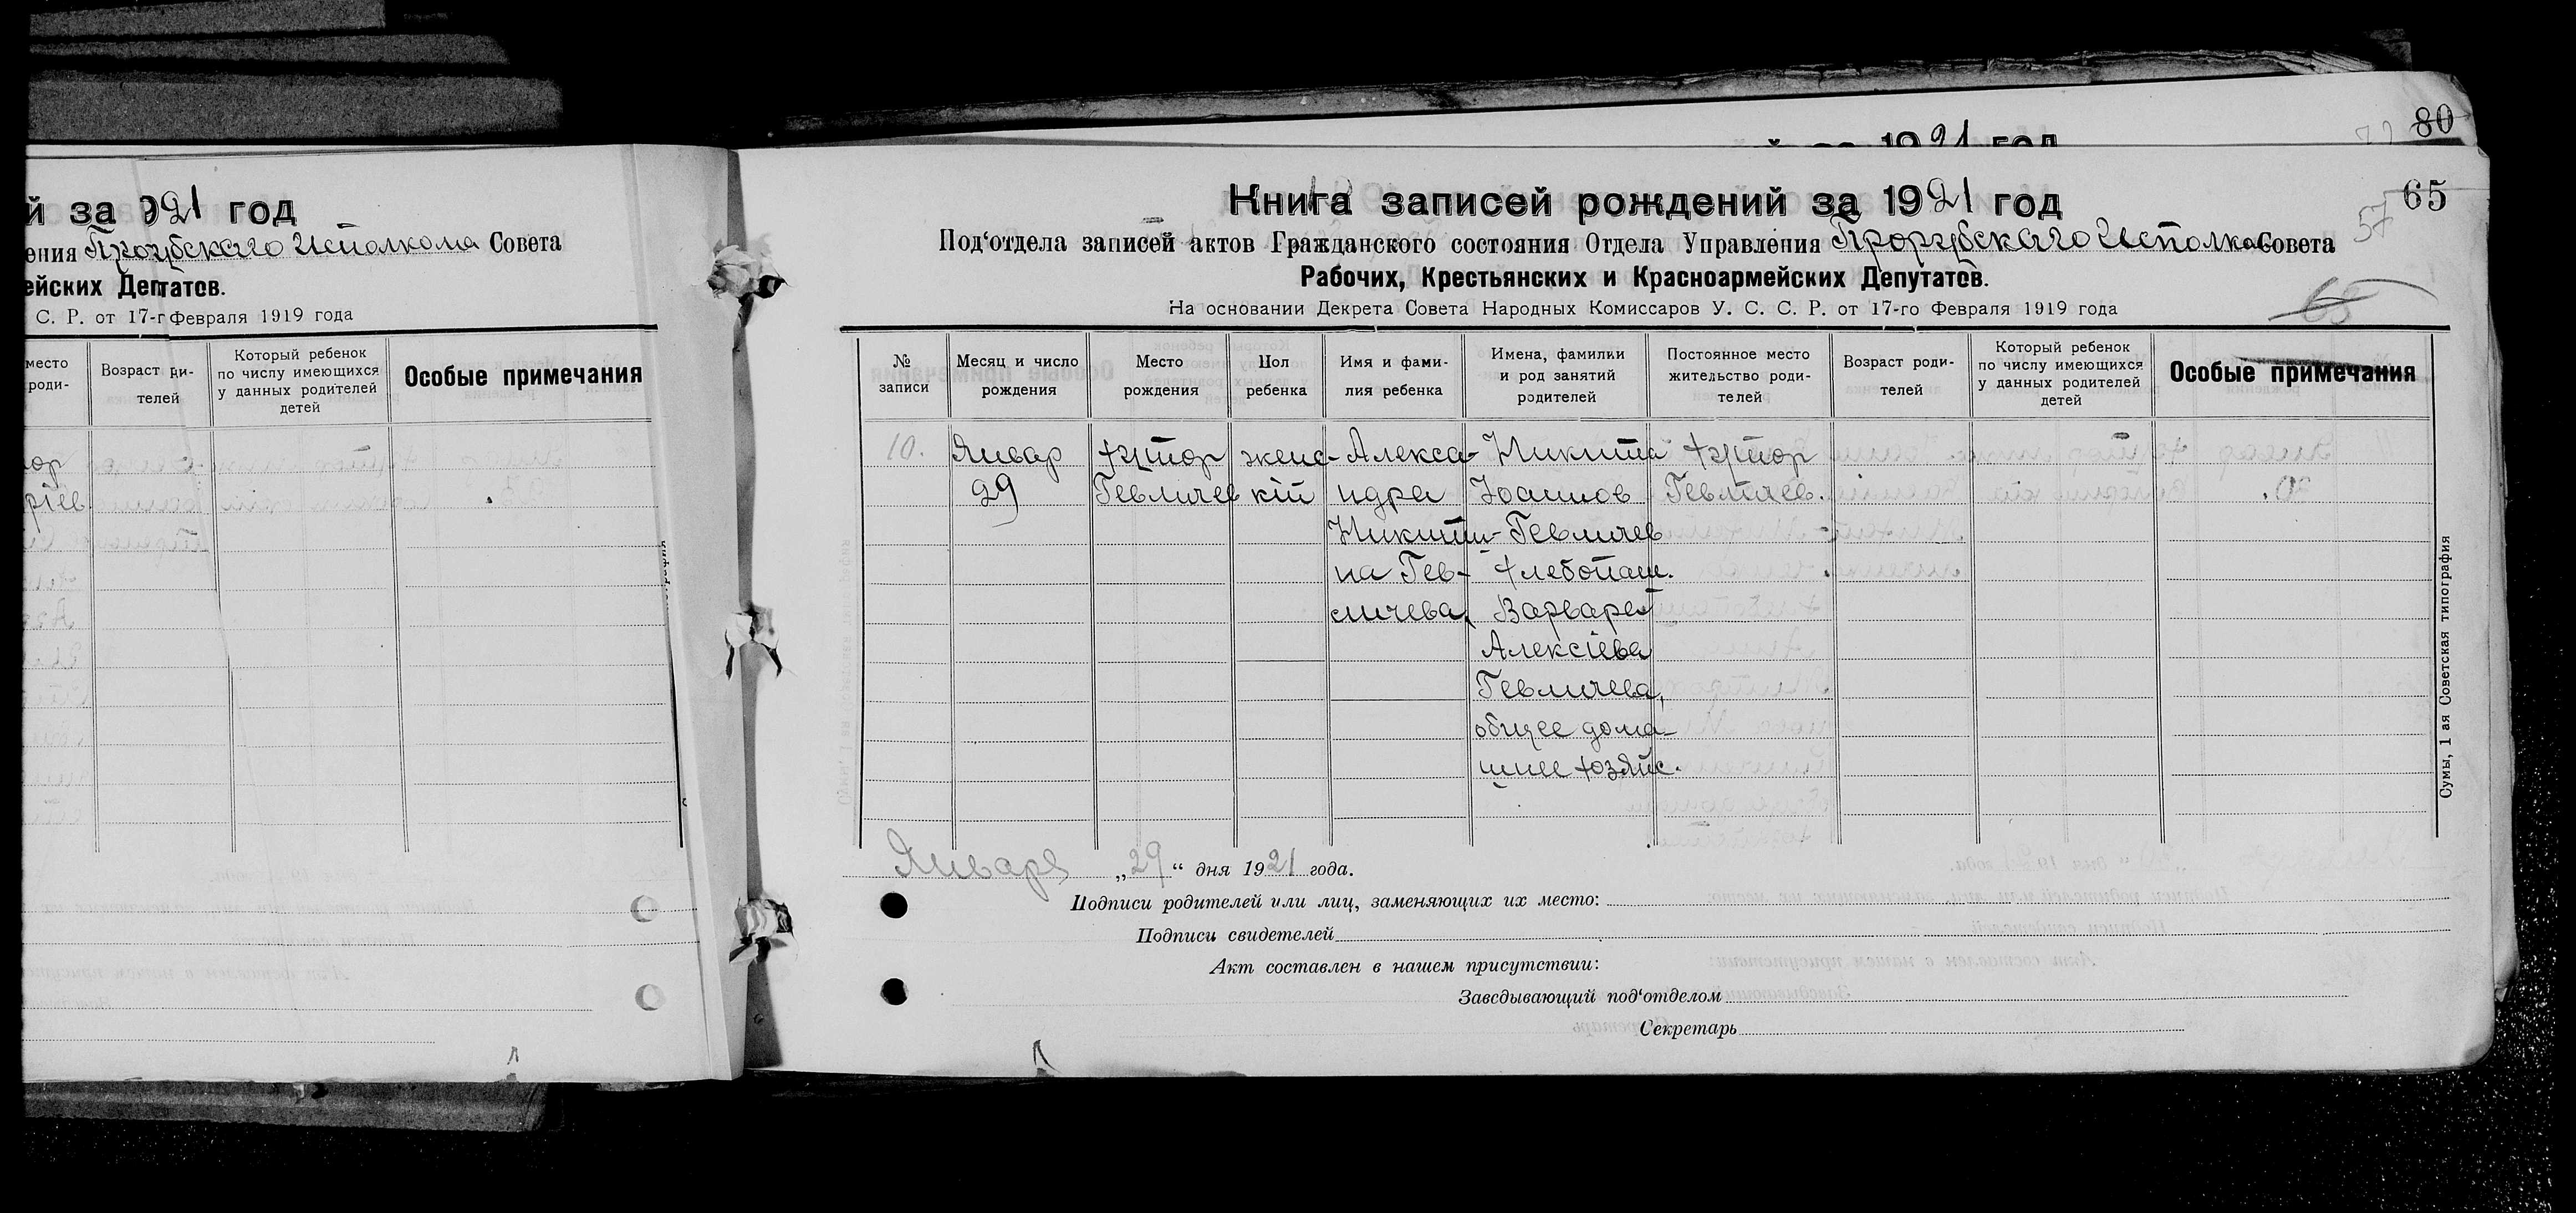 й за 1921 год
ения Прорубскаго Исполкома Совета
ейских Депутатов.
С. Р. от 17-г Февраля 1919 года
место
роди-
Возраст ди-
телей
Который ребенок
по числу имеющихся
у данных родителей
детей
Особые примечания
ор
ріев
80
й за 1921 год
65
57
65
Книга записей рождений за 1921 год
Под‘отдела записей актов Гражданского состояния Отдела Управления Прорубскаго Исполком Совета
Рабочих, Крестьянских и Красноармейских Депутатов.
На основании Декрета Совета Народных Комиссаров У. С. С. Р. от 17-го Февраля 1919 года
№
записи
Месяц и число
рождения
Место
рождения
Пол
ребенка
Имя и фами-
лия ребенка
Имена, фамилии
и род занятий
родителей
Постоянное место
жительство роди-
телей
Возраст роди-
телей
Который ребенок
по числу имеющихся
у данных родителей
детей
Особые примечания
10.
Январ
29
Хутор
Гевличев
женс-
кій
Алекса-
ндра
Никити-
на Гев-
личева
Никита
Іоаннов
Гевличев
Хлебопаш.
Варвара
Алексіева
Гевличева,
общее дома-
шнее хозяйс.
Хутор
Гевличев.
Января „29“ дня 1921 года.
Подписи родителей или лиц, заменяющих их место:
Подписи свидетелей
Акт составлен в нашем присутствии:
Заведывающий под‘отделом
Секретарь
Сумы, 1 ая Советская типография